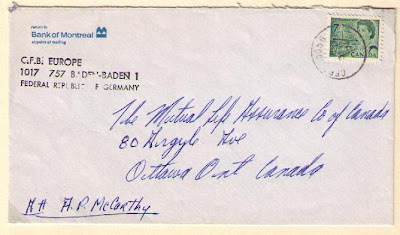 return to
Bank of Montreal
at point of mailing
C.F.B. EUROPE
1017 757 BADEN-BADEN 1
FEDERAL REPUBLIC F GERMANY
7
CANADA
The Mutual Life Assurance Co of Canada
80 Argyle Ave
Ottawa Ont Canada
Att A.P. McCarthy